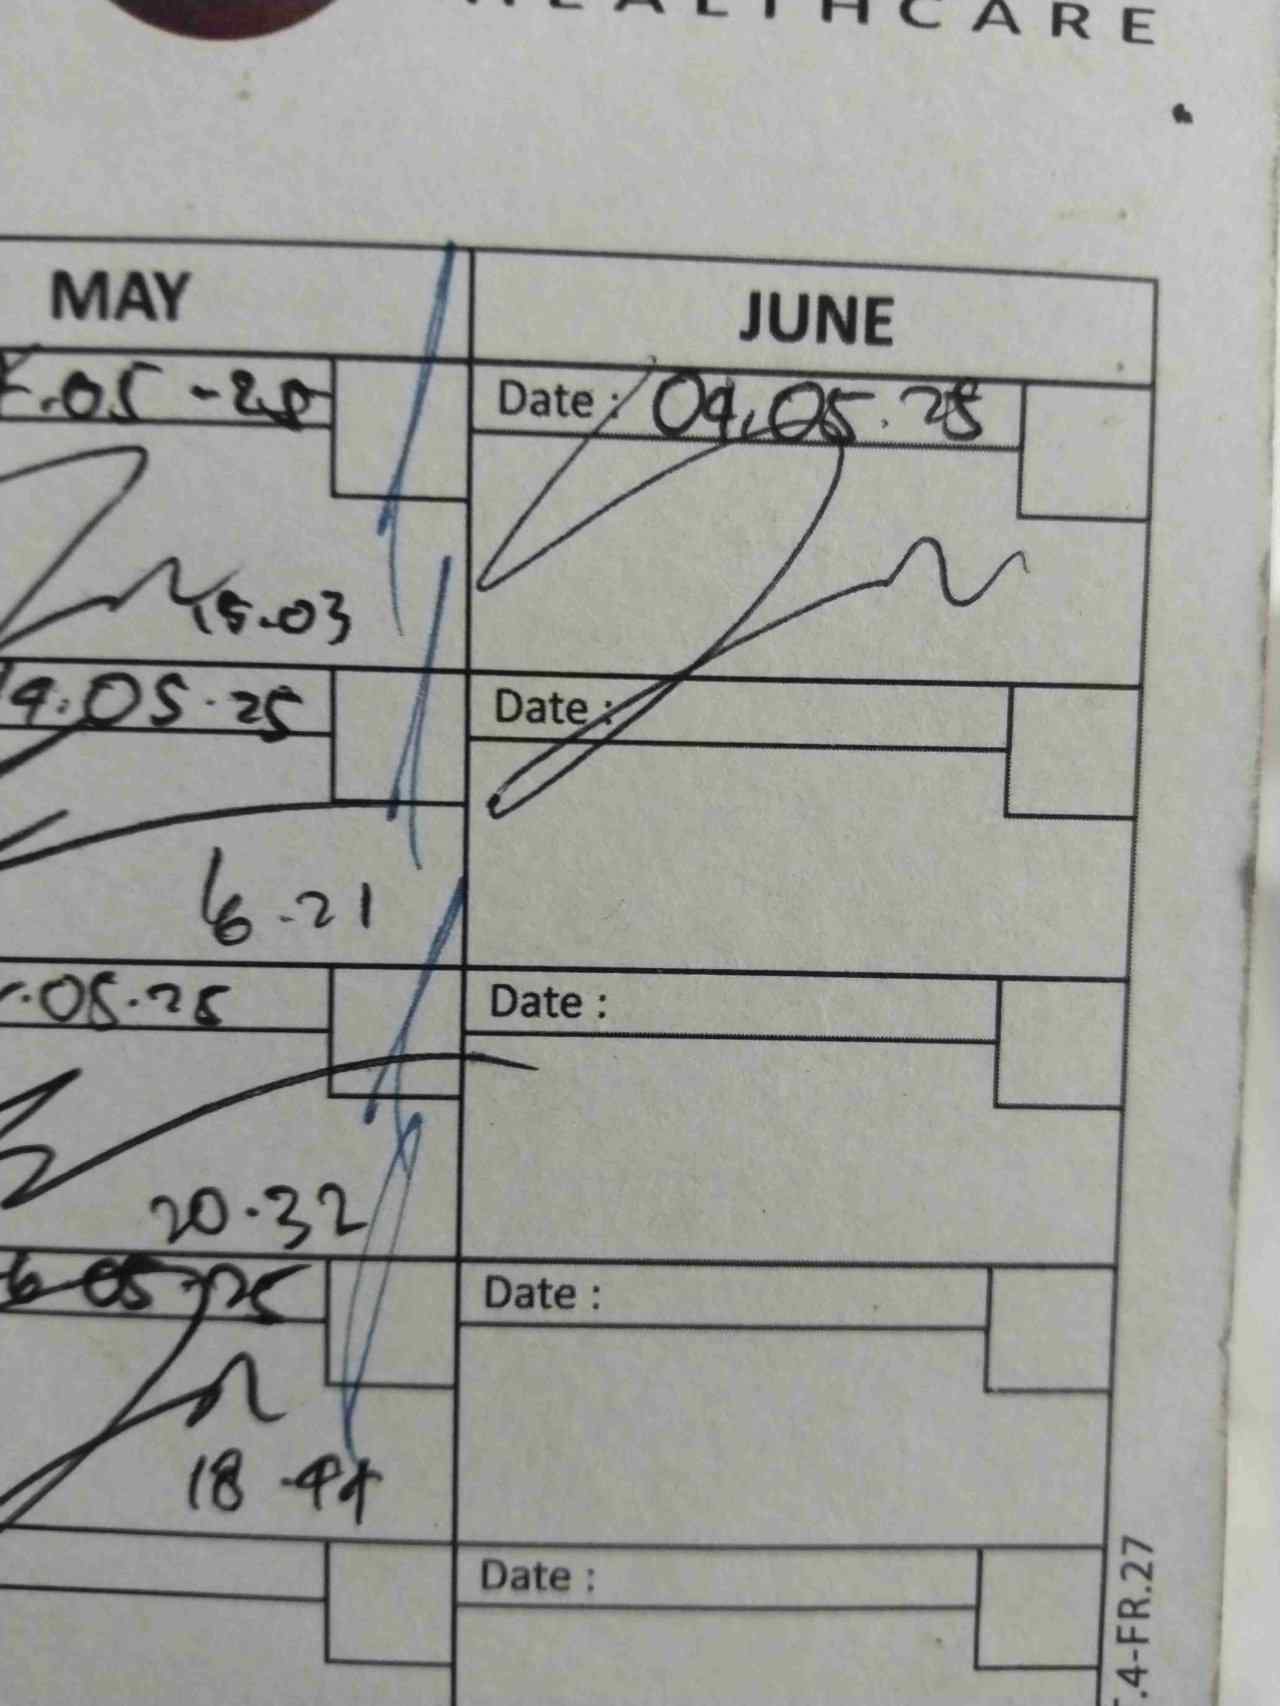 HEALTHCARE
MAY JUNE
.05-25 Date : 04.05.25
15.03
19.05.25 Date :
16.21
.05.25 Date :
20.32
6.05.25 Date :
18.44
Date :
.4-FR.27